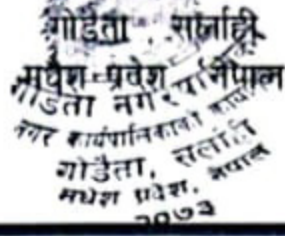 गोडैता , सर्लाही
मधेश प्रदेश , नेपाल
गोडैता नगरपालिका
नगर कार्यपालिकाको कार्यालय
गोडैता, सर्लाही
मधेश प्रदेश, नेपाल
२०७३